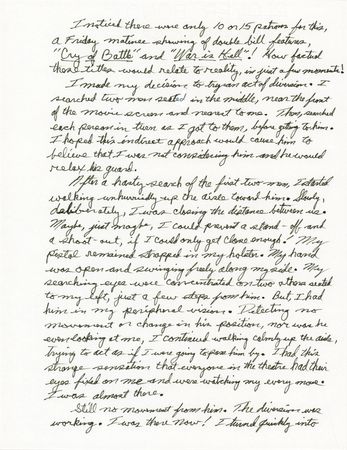 I noticed there were only 10 or 15 patrons for this,
a Friday matinee showing of double bill features,
"Cry of Battle" and "War is Hell"! How factual
those titles would relate to reality, in just a few moments!
I made my decision to try an act of diversion. I
searched two men seated in the middle, near the front
of the movie screen and nearest to me. Then, searched
each person in turn as I got to them, before getting to him.
I hoped this indirect approach would cause him to
believe that I was not considering him and he would
relax his guard.
After a hasty search of the first two men, I started
walking unhurriedly up the aisle toward him. Slowly,
deliberately, I was closing the distance between us.
Maybe, just maybe, I could prevent a stand-off and
a shoot-out, if I could only get close enough! My
pistol remained strapped in my holster. My hand
was open and swinging freely along my side. My
searching eyes were concentrated on two others seated
to my left, just a few steps from him. But, I had
him in my peripheral vision. Detecting no
movement or change in his position, nor was he
even looking at me, I continued walking calmly up the aisle,
trying to act as if I was going to pass him by. I had this
strange sensation that everyone in the theatre had their
eyes fixed on me and were watching my every move.
I was almost there.
Still no movement from him. The diversion was
working. I was there now! I turned quickly into